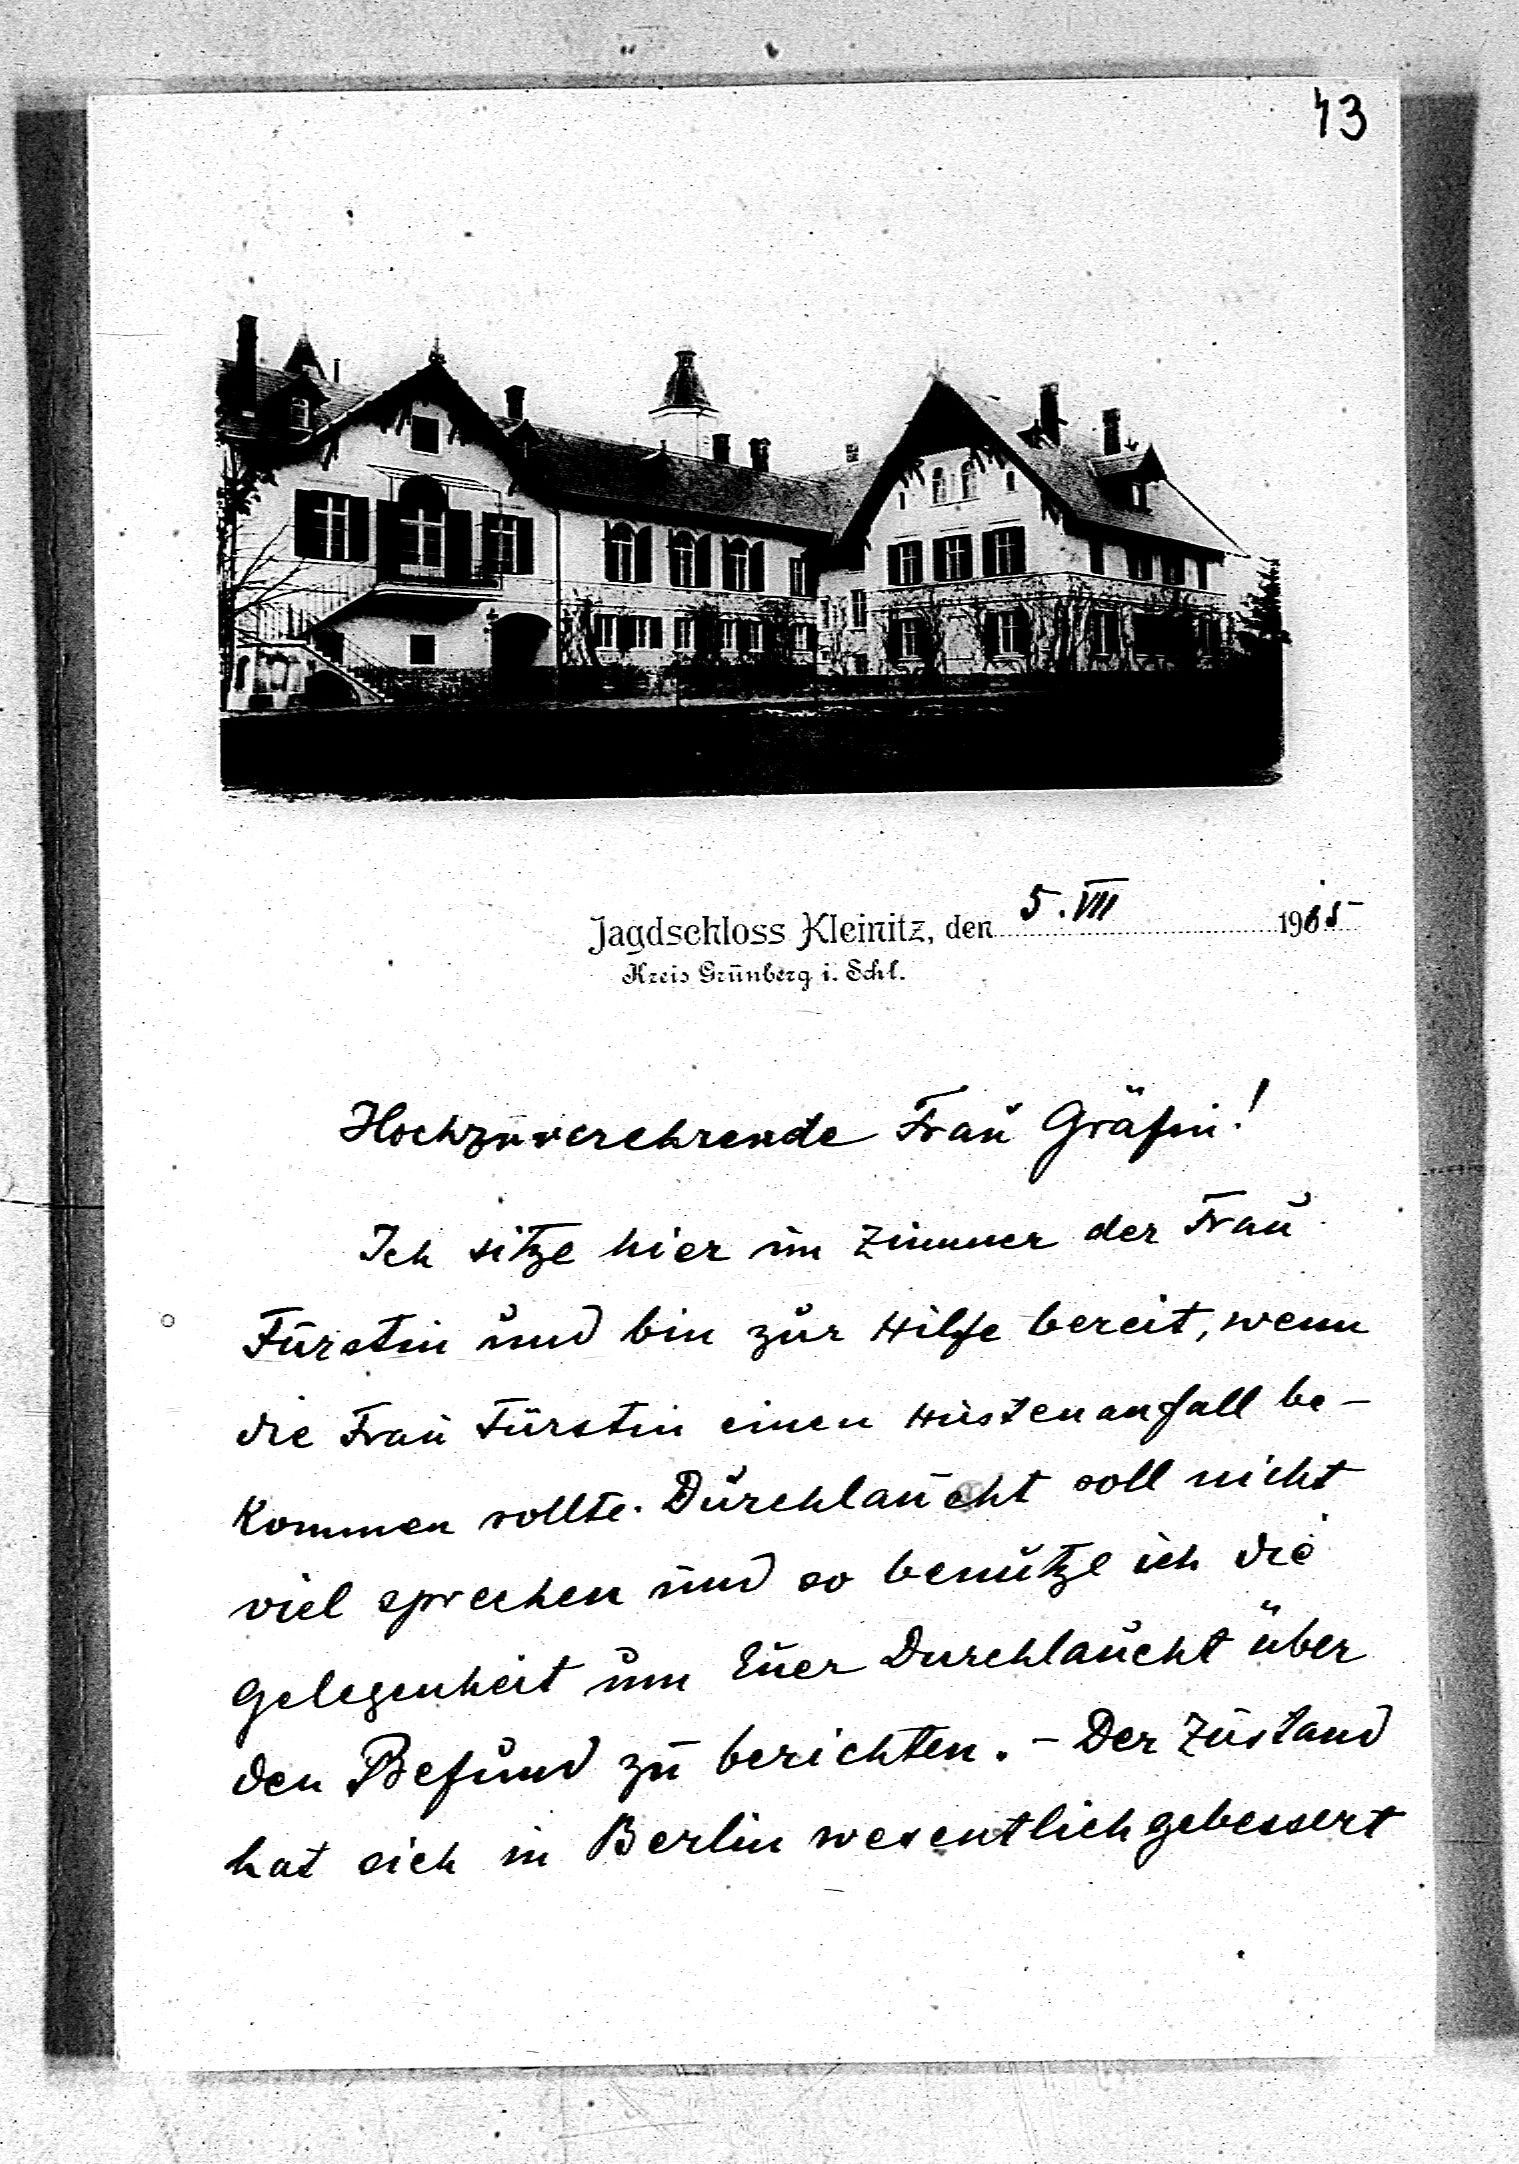 43
Jagdschloss Kleinitz, den 5. VII 1915
Kreis Grünberg i. Schl.
Hochzuverehrende Frau Gräfin!
Ich sitze hier im Zimmer der Frau
Fürstin und bin zur Hilfe bereit, wenn
die Frau Fürstin einen Hustenanfall be-
kommen sollte. Durchlaucht soll nicht
viel sprechen und so benutze ich die
Gelegenheit um Euer Durchlaucht über
den Befund zu berichten. - Der Zustand
hat sich in Berlin wesentlich gebessert